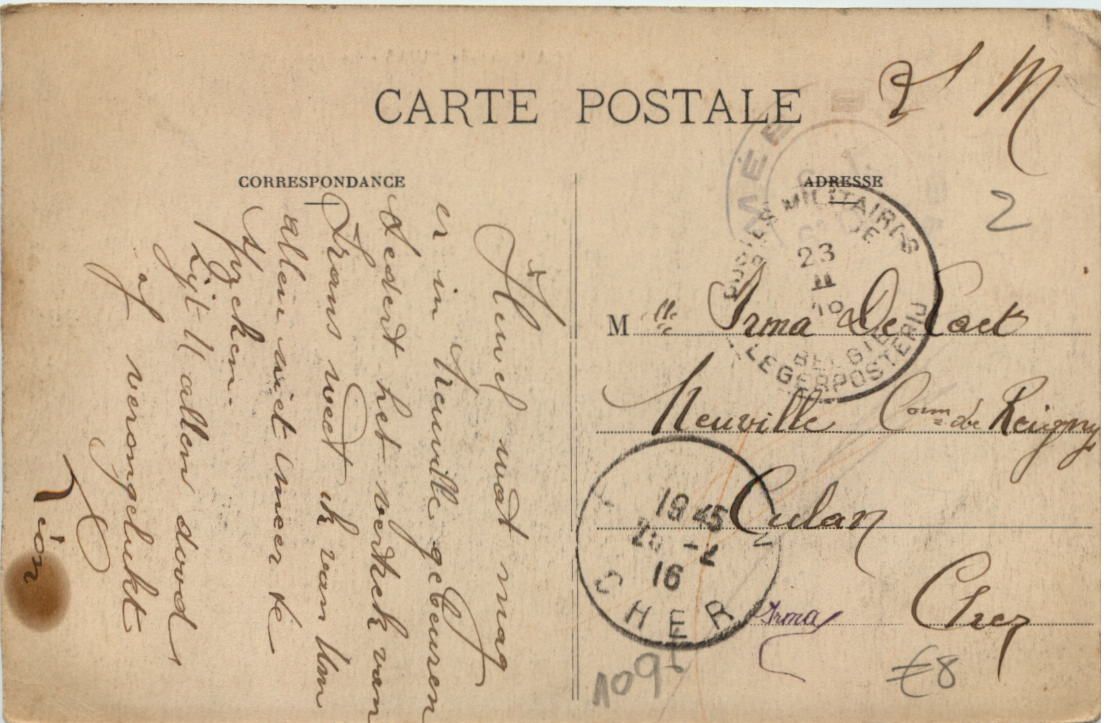 CARTE POSTALE
S M
CORRESPONDANCE
ADRESSE
2
Hewel wat mag
er in Neuville gebeuren
sedert het vertrek van
Frans weet ik van Uw
allen niet meer te
spreken.
Zijt U allen dood
of verongelukt
MÉE
POSTES MILITAIRES
23
II
16
BELGIË
LEGERPOSTERIJ
Mlle Irma De Caet
Neuville Comm de Reigny
Culan
Cher
19 45
2
16
CHER
Irma
1095
€8